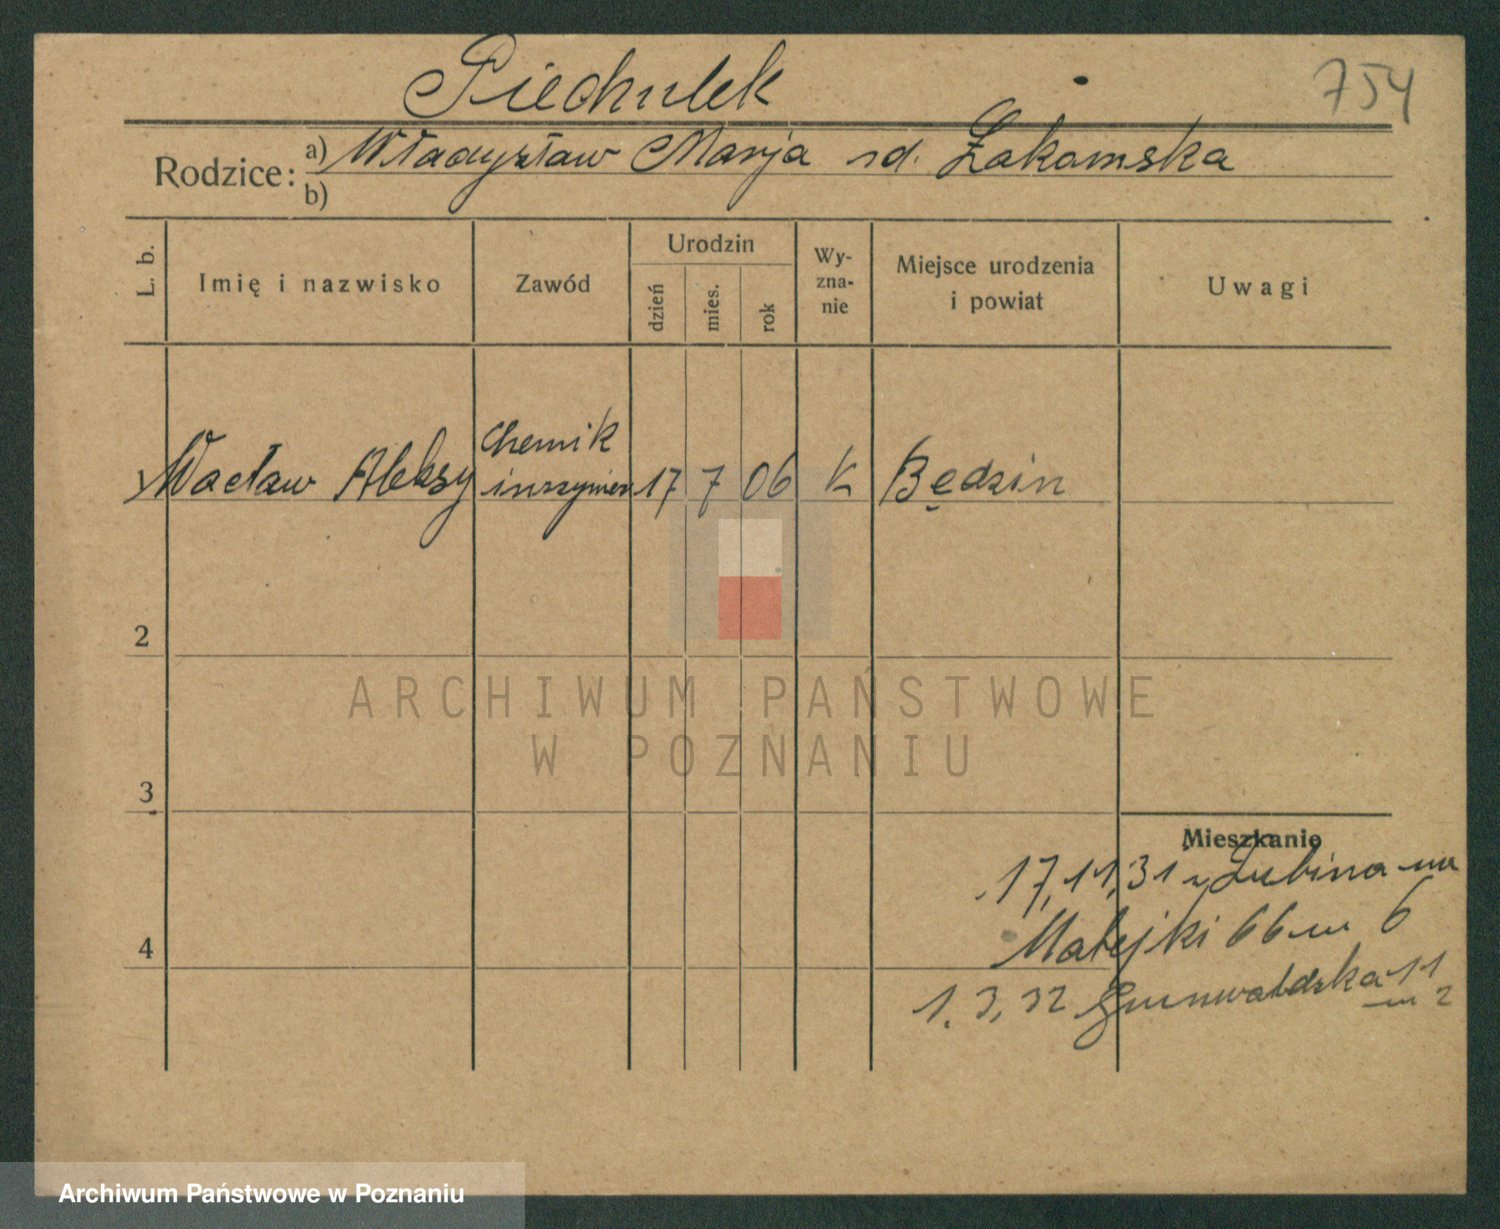 Piechulek
754
Rodzice: a) Władysław Marja rd. Żakamska
b)
L. b.
Imię i nazwisko
Zawód
Urodzin
dzień
mies.
rok
Wy-
zna-
nie
Miejsce urodzenia
i powiat
Uwagi
1 Wacław Aleksy
Chemik
inżynier
17 7 06 K Będzin
2
3
4
ARCHIWUM PAŃSTWOWE
W POZNANIU
Mieszkanie
17, 11, 31 z Lubina
Matejki 66 m 6
1. 3, 32 Grunwaldzka 11
m 2
Archiwum Państwowe w Poznaniu